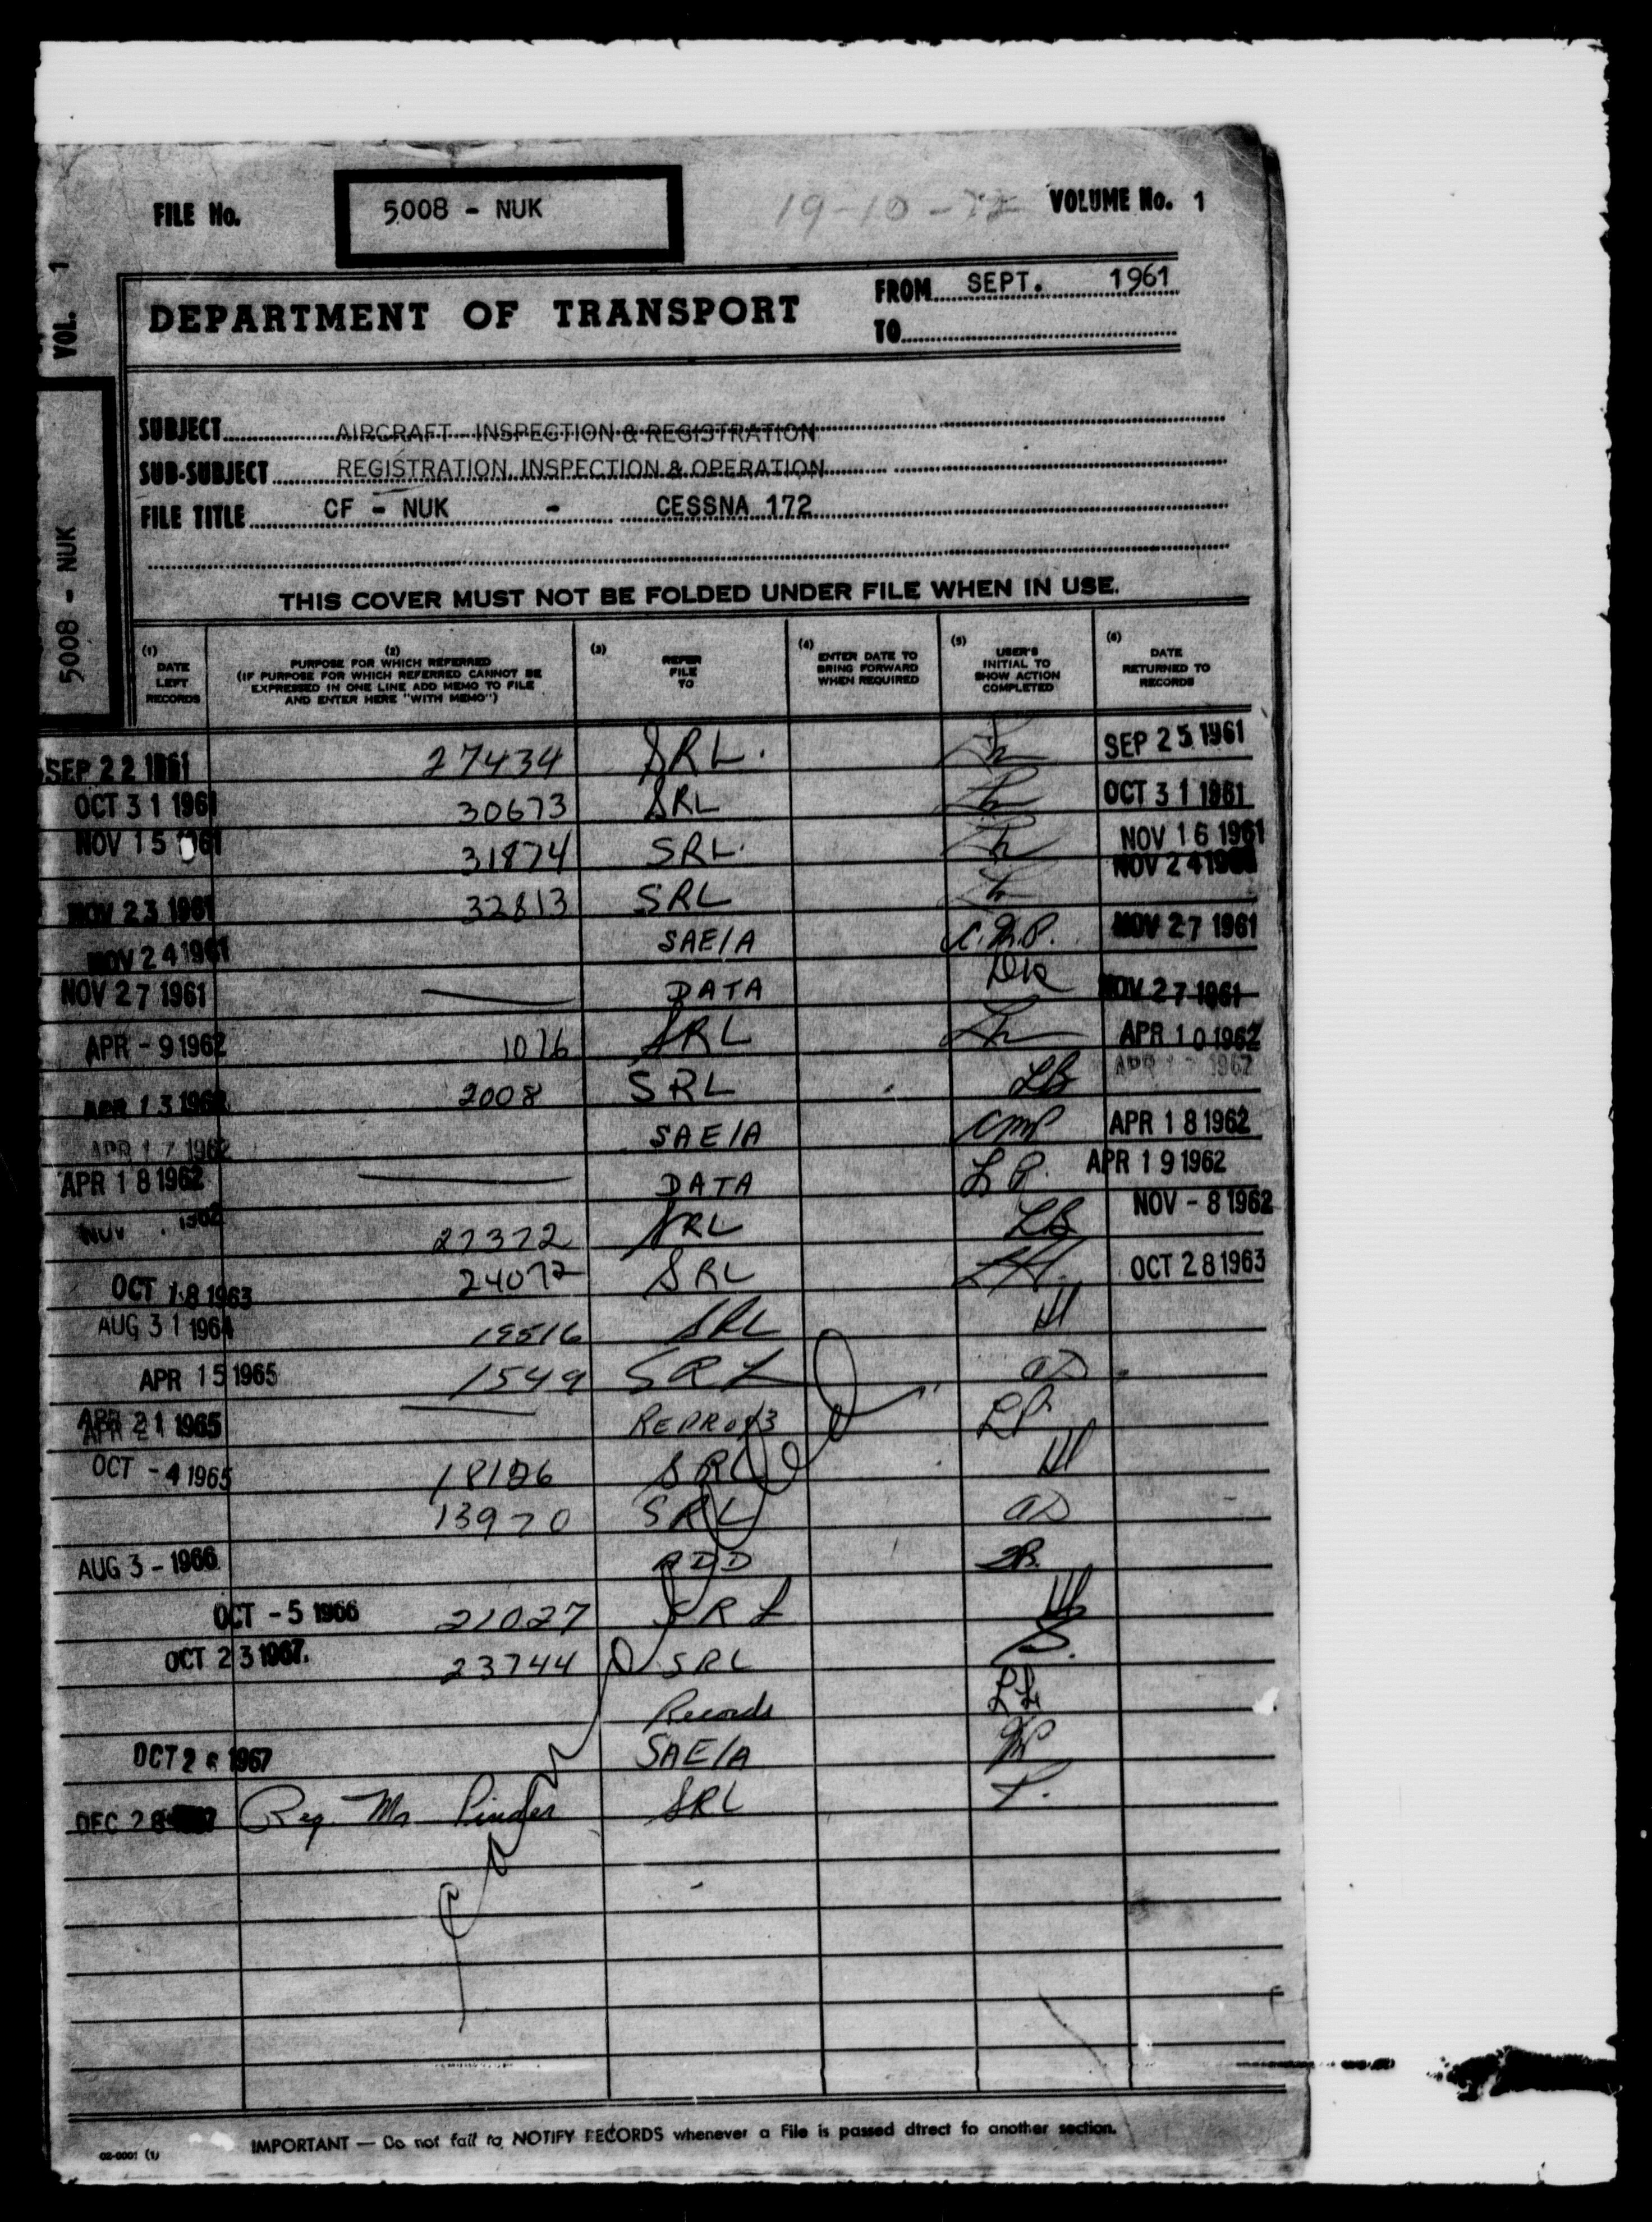 FILE No. 5008 - NUK VOLUME No. 1
VOL. 1
5008 - NUK
DEPARTMENT OF TRANSPORT
FROM SEPT. 1961
TO
SUBJECT AIRCRAFT - INSPECTION & REGISTRATION
SUB-SUBJECT REGISTRATION, INSPECTION & OPERATION
FILE TITLE CF - NUK - CESSNA 172
THIS COVER MUST NOT BE FOLDED UNDER FILE WHEN IN USE.
(1) DATE LEFT RECORDS
(2) PURPOSE FOR WHICH REFERRED (IF PURPOSE FOR WHICH REFERRED CANNOT BE EXPRESSED IN ONE LINE ADD MEMO TO FILE AND ENTER HERE "WITH MEMO")
(3) REFER FILE TO
(4) ENTER DATE TO BRING FORWARD WHEN REQUIRED
(5) USER'S INITIAL TO SHOW ACTION COMPLETED
(6) DATE RETURNED TO RECORDS
SEP 22 1961 27434 SRL. SEP 25 1961
OCT 31 1961 30673 SRL OCT 31 1961
NOV 15 1961 31874 SRL. NOV 16 1961
NOV 23 1961 32813 SRL NOV 24 1961
NOV 24 1961 SAE/A NOV 27 1961
NOV 27 1961 DATA NOV 27 1961
APR - 9 1962 1076 SRL APR 10 1962
APR 13 1962 2008 SRL LB APR 1962
APR 17 1962 SAE/A CMP APR 18 1962
APR 18 1962 DATA LP. APR 19 1962
NOV 1962 27372 SRL LB NOV - 8 1962
OCT 18 1963 24072 SRL OCT 28 1963
AUG 31 1964 19516 SRL
APR 15 1965 1549 SRL
APR 21 1965 LP
OCT - 4 1965 18126 SRL
13970 SRL
AUG 3 - 1966
OCT - 5 1966 21027 SRL
OCT 23 1967. 23744 SRL
Records
OCT 2 1967 SAE/A
DEC 28 Req. Mr Pinder SRL
02-0001 (1)
IMPORTANT — Do not fail to NOTIFY RECORDS whenever a File is passed direct to another section.